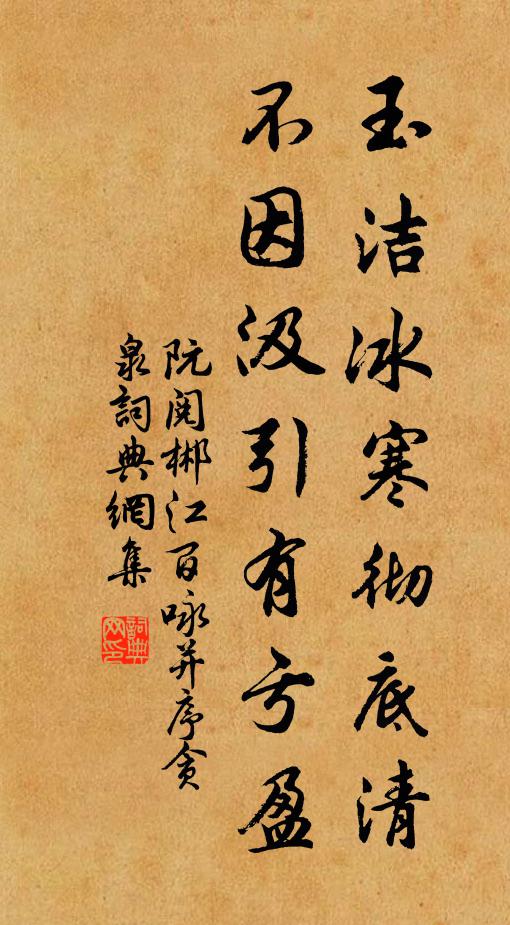 玉洁冰寒彻底清
不因汲引有亏盈
阮阅郴江百咏并序贪
泉词典網集
詞典網印